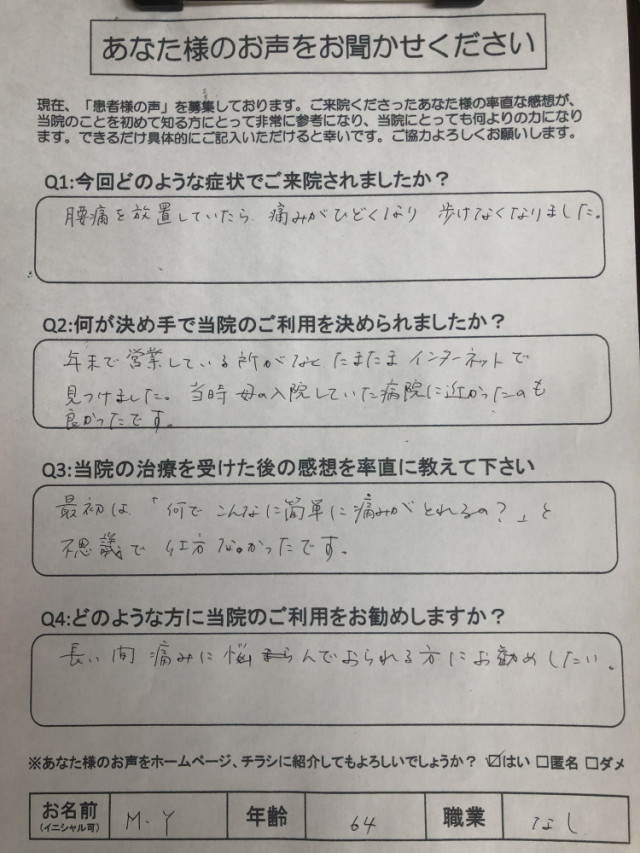 あなた様のお声をお聞かせください
現在、「患者様の声」を募集しております。ご来院くださったあなた様の率直な感想が、
当院のことを初めて知る方にとって非常に参考になり、当院にとっても何よりの力になり
ます。できるだけ具体的にご記入いただけると幸いです。ご協力よろしくお願いします。
Q1:今回どのような症状でご来院されましたか？
腰痛を放置していたら 痛みがひどくなり 歩けなくなりました。
Q2:何が決め手で当院のご利用を決められましたか？
年末で営業している所がなく たまたま インターネットで
見つけました。当時 母の入院していた病院に近かったのも
良かったです。
Q3:当院の治療を受けた後の感想を率直に教えて下さい
最初は「何で こんなに簡単に痛みがとれるの？」と
不思議で仕方なかったです。
Q4:どのような方に当院のご利用をお勧めしますか？
長い間 痛みに悩んでおられる方にお勧めしたい。
※あなた様のお声をホームページ、チラシに紹介してもよろしいでしょうか？ ☑はい □匿名 □ダメ
お名前 M.Y 年齢 64 職業 なし
(イニシャル可)